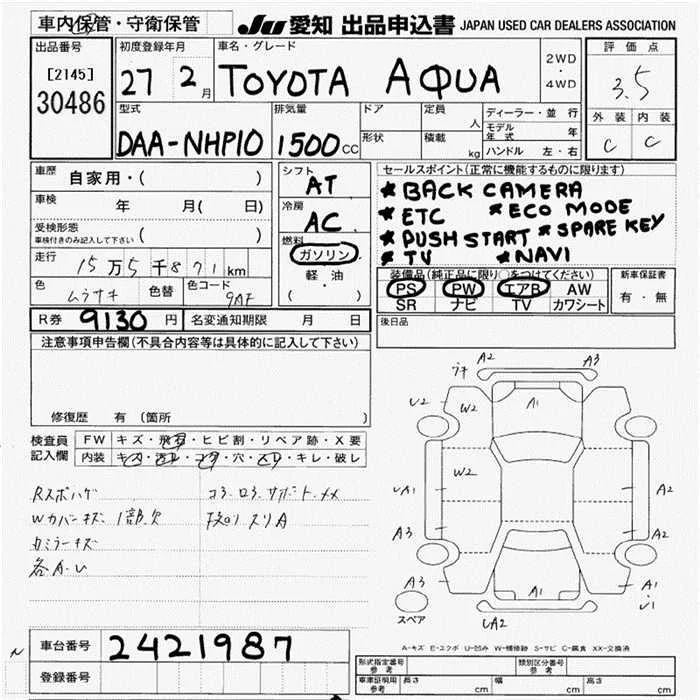 車内保管・守衛保管
JU 愛知 出品申込書 JAPAN USED CAR DEALERS ASSOCIATION
出品番号
[2145]
30486
初度登録年月
27 2月
車名・グレード
TOYOTA AQUA
2WD
・
4WD
評価点
3.5
外装 内装
C C
型式
DAA-NHP10
排気量
1500cc
ドア
形状
定員
人
積載
kg
ディーラー・並行
モデル年式 年
ハンドル 左・右
車歴
自家用・( )
車検
年 月( 日)
受検形態
車検付きのみ記入して下さい ( )
走行
15万5千871km
色
ムラサキ
色替
色コード
9AF
シフト
AT
冷房
AC
燃料
ガソリン
軽・油
( )
セールスポイント(正常に機能するものに限ります)
★BACK CAMERA
★ETC ★ECO MODE
★PUSH START ★SPARE KEY
★TV ★NAVI
装備品(純正品に限り○をつけてください)
PS PW エアB AW
SR ナビ TV カワシート
新車保証書
有・無
R券 9130円 名変通知期限 月 日
後日品
注意事項申告欄(不具合内容等は具体的に記入して下さい)
修復歴 有(箇所 )
検査員
記入欄
FW キズ・飛石・ヒビ割・リペア跡・X要
内装 キズ・汚レ・コゲ・穴・スレ・キレ・破レ
Rスポハゲ
Wカバーキズ 1部欠
各A・U
A2 A3
U2 W2 A1
W2
A1 A2
A3 A2
A3 A1 A1
スペア
A2
A-キズ E-エクボ U-凹み W-補修跡 S-サビ C-腐食 XX-交換済
車台番号 2421987
登録番号
形式指定番号
参考
類別区分番号
参考
車庫証明用
参考
長さ cm 幅 cm 高さ cm